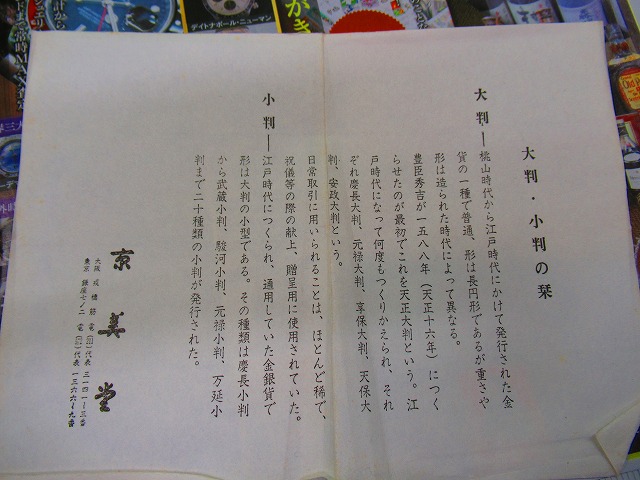 大判・小判の栞
大判―桃山時代から江戸時代にかけて発行された金
貨の一種で普通、形は長円形であるが重さや
形は造られた時代によって異なる。
豊臣秀吉が一五八八年（天正十六年）につく
らせたのが最初でこれを天正大判という。江
戸時代になって何度もつくりかえられ、それ
ぞれ慶長大判、元禄大判、享保大判、天保大
判、安政大判という。
日常取引に用いられることは、ほとんど稀で、
祝儀等の際の献上、贈呈用に使用されていた。
小判―江戸時代につくられ、通用していた金銀貨で
形は大判の小型である。その種類は慶長小判
から武蔵小判、駿河小判、元禄小判、万延小
判まで二十種類の小判が発行された。
京美堂
大阪 戎橋筋 電 代表 三一四一~三番
東京 銀座七ノ二 電 代表 一三六六~九番
デイトナポール・ニューマン
がき